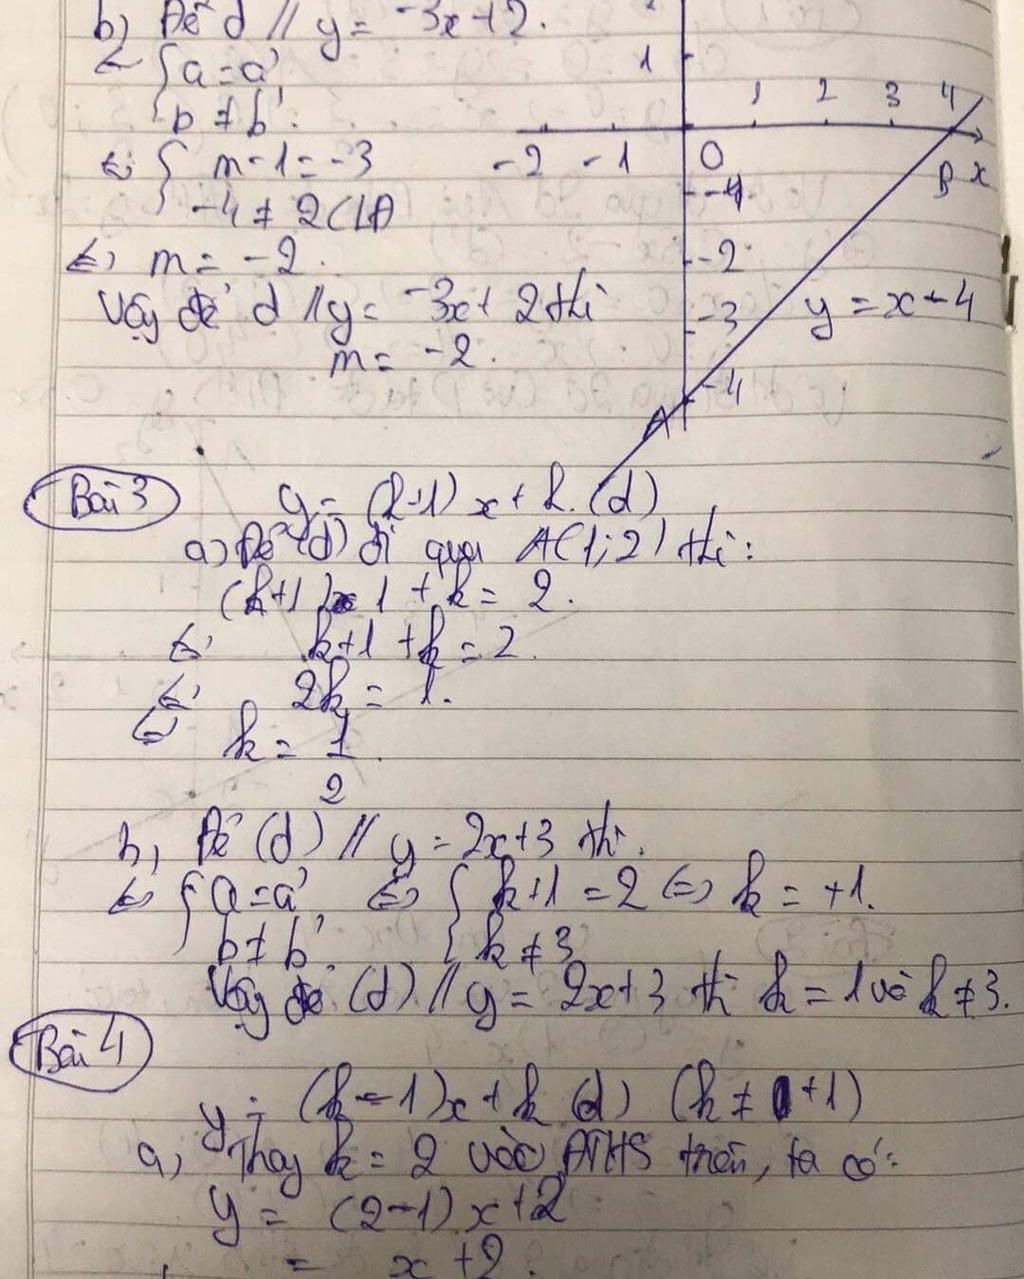 b) Để d // y = -3x+2.
<=> { a = a'
b ≠ b'.
<=> { m-1=-3
-4 ≠ 2 (LĐ)
<=> m = -2.
Vậy để d // y = -3x + 2 thì
m = -2.
1
1 2 3 4
-2 -1 0 B x
-1
-2
-3
-4
A
y = x-4
Bài 3 y = (k+1)x + k (d)
a) Để (d) đi qua A(1;2) thì:
(k+1)x1 + k = 2.
<=> k+1+k = 2.
<=> 2k = 1.
<=> k = 1/2.
b, Để (d) // y = 2x+3 thì.
<=> { a = a' <=> { k+1 = 2 <=> k = +1.
b ≠ b'. k ≠ 3
Vậy để (d) // y = 2x+3 thì k = 1 và k ≠ 3.
Bài 4
y = (k-1)x + k (d) (k ≠ +1)
a, Thay k = 2 vào PTHS trên, ta có:
y = (2-1)x+2
= x+2.